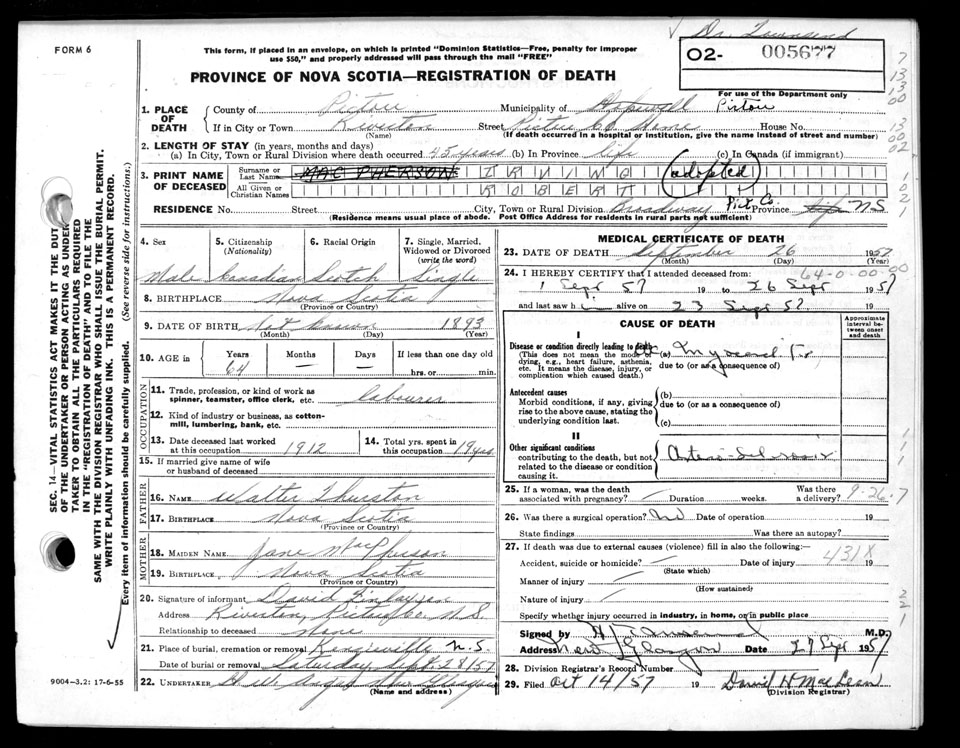 Dr. Townsend
FORM 6
This form, if placed in an envelope, on which is printed "Dominion Statistics—Free, penalty for improper
use $50," and properly addressed will pass through the mail "FREE"
PROVINCE OF NOVA SCOTIA—REGISTRATION OF DEATH
02- 005677
For use of the Department only
1. PLACE OF DEATH
County of Pictou Municipality of Hopewell Pictou
If in City or Town Riverton Street Pictou Co Home House No.
(Name) (If death occurred in a hospital or institution, give the name instead of street and number)
2. LENGTH OF STAY (in years, months and days)
(a) In City, Town or Rural Division where death occurred 45 years (b) In Province life (c) In Canada (if immigrant)
3. PRINT NAME OF DECEASED
Surname or Last Name MAC PHERSON IRVING (adopted)
All Given or Christian Names ROBERT
RESIDENCE No. Street City, Town or Rural Division Broadway Pict. Co. Province life NS
(Residence means usual place of abode. Post Office Address for residents in rural parts not sufficient)
4. Sex Male
5. Citizenship (Nationality) Canadian
6. Racial Origin Scotch
7. Single, Married, Widowed or Divorced (write the word) Single
8. BIRTHPLACE Nova Scotia
(Province or Country)
9. DATE OF BIRTH Not Known 1893
(Month) (Day) (Year)
10. AGE in Years 64 Months — Days — If less than one day old hrs. or min.
OCCUPATION
11. Trade, profession, or kind of work as spinner, teamster, office clerk, etc. labourer
12. Kind of industry or business, as cotton-mill, lumbering, bank, etc.
13. Date deceased last worked at this occupation 1912
14. Total yrs. spent in this occupation 19 yrs
15. If married give name of wife or husband of deceased
FATHER
16. NAME Walter Thurston
17. BIRTHPLACE Nova Scotia
(Province or Country)
MOTHER
18. MAIDEN NAME Jane MacPherson
19. BIRTHPLACE Nova Scotia
(Province or Country)
20. Signature of informant David Finlayson
Address Riverton, Pictou Co. N.S.
Relationship to deceased None
21. Place of burial, cremation or removal N.S.
Date of burial or removal Saturday, Sept 28/57
22. UNDERTAKER New Glasgow
(Name and address)
9004—3.2: 17-6-55
MEDICAL CERTIFICATE OF DEATH
23. DATE OF DEATH September 26 1957
(Month) (Day) (Year)
64-0-00-00
24. I HEREBY CERTIFY that I attended deceased from:
1 Sept 57 19 to 26 Sept 1957
and last saw h i alive on 23 Sept 57 19
CAUSE OF DEATH
Approximate interval between onset and death
I
Disease or condition directly leading to death
(This does not mean the mode of dying, e.g., heart failure, asthenia, etc. It means the disease, injury, or complication which caused death.)
(a)
due to (or as a consequence of)
Antecedent causes
Morbid conditions, if any, giving rise to the above cause, stating the underlying condition last.
(b)
due to (or as a consequence of)
(c)
II
Other significant conditions
contributing to the death, but not related to the disease or condition causing it.
25. If a woman, was the death associated with pregnancy? Duration weeks. Was there a delivery? 9-26-7
26. Was there a surgical operation? No Date of operation 19
State findings Was there an autopsy?
27. If death was due to external causes (violence) fill in also the following:—
Accident, suicide or homicide? Date of injury 431X 19
(State which)
Manner of injury
(How sustained)
Nature of injury
Specify whether injury occurred in industry, in home, or in public place
Signed by M.D.
Address New Glasgow Date 27 Sept 1957
28. Division Registrar's Record Number
29. Filed Oct 14/57 19 David H MacLean
(Division Registrar)
SEC. 14—VITAL STATISTICS ACT MAKES IT THE DUTY
OF THE UNDERTAKER OR PERSON ACTING AS UNDER-
TAKER TO OBTAIN ALL THE PARTICULARS REQUIRED
IN THE "REGISTRATION OF DEATH" AND TO FILE THE
SAME WITH THE DIVISION REGISTRAR WHO SHALL ISSUE THE BURIAL PERMIT.
WRITE PLAINLY WITH UNFADING INK. THIS IS A PERMANENT RECORD.
Every item of information should be carefully supplied. (See reverse side for instructions.)